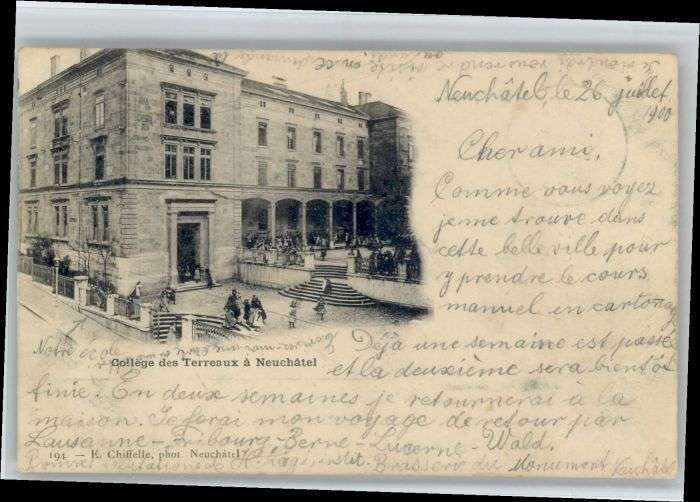 Neuchâtel, le 26 juillet
1900
Cher ami,
Comme vous voyez
je me trouve dans
cette belle ville pour
y prendre le cours
manuel en cartonag
Déjà une semaine est passé
et la deuxième sera bientôt
finie. En deux semaines je retournerai à la
maison. Je ferai mon voyage de retour par
Lausanne-Fribourg-Berne-Lucerne-Wald.
Notre école
Collège des Terreaux à Neuchâtel
191 — E. Chiffelle, phot. Neuchâtel
Brasserie du Monument Neuchâtel